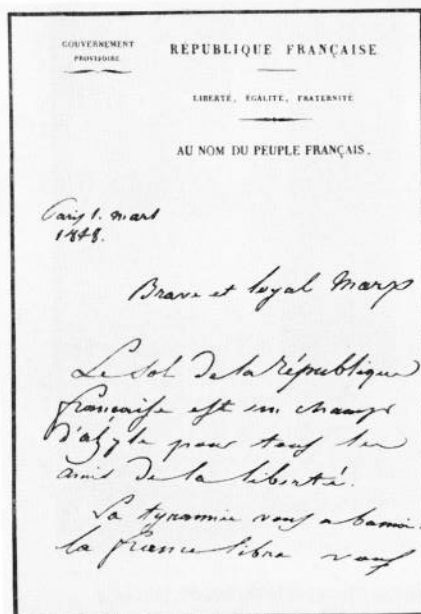 GOUVERNEMENT
PROVISOIRE
RÉPUBLIQUE FRANÇAISE
LIBERTÉ, ÉGALITÉ, FRATERNITÉ
AU NOM DU PEUPLE FRANÇAIS.
Paris 1. mars
1848.
Brave et loyal Marx
Le sol de la république
française est un champ
d'azyle pour tous les
amis de la liberté.
La tyrannie vous a banni
la france libre vous